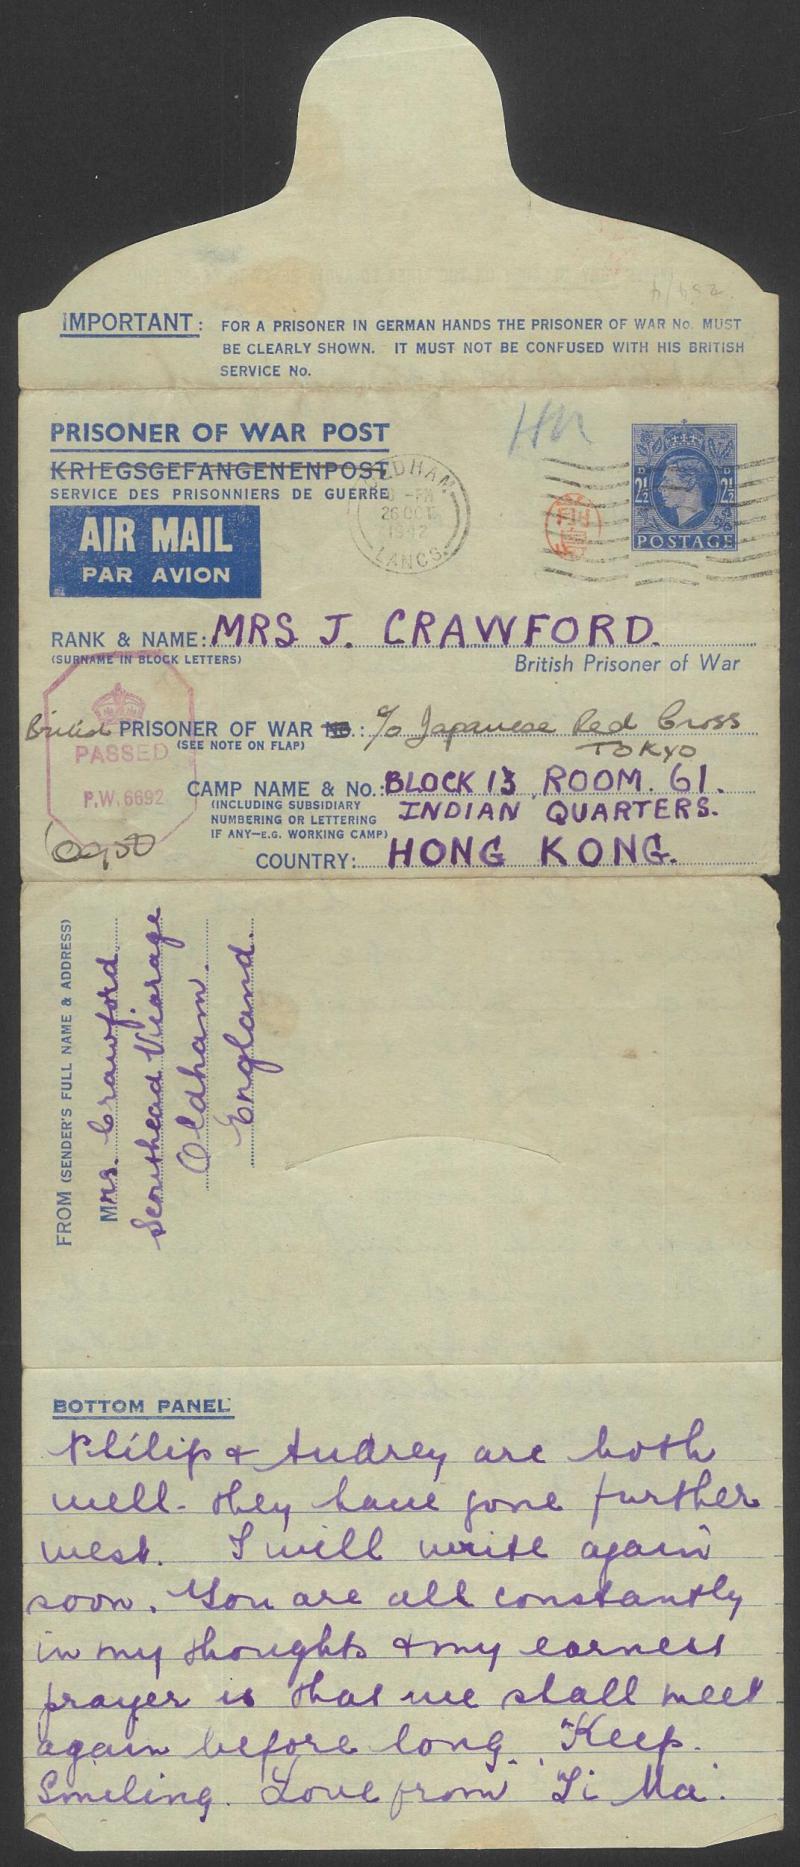 IMPORTANT: FOR A PRISONER IN GERMAN HANDS THE PRISONER OF WAR No. MUST
BE CLEARLY SHOWN. IT MUST NOT BE CONFUSED WITH HIS BRITISH
SERVICE No.
PRISONER OF WAR POST
KRIEGSGEFANGENENPOST
SERVICE DES PRISONNIERS DE GUERRE
AIR MAIL
PAR AVION
OLDHAM
-PM
26 OCT
LANCS.
2½ D 2½ D
POSTAGE
RANK & NAME: MRS J. CRAWFORD.
(SURNAME IN BLOCK LETTERS)
British Prisoner of War
British PRISONER OF WAR No.: c/o Japanese Red Cross
(SEE NOTE ON FLAP)
TOKYO
PASSED
P.W. 6692
CAMP NAME & No.: BLOCK 13 ROOM. 61.
(INCLUDING SUBSIDIARY
NUMBERING OR LETTERING
IF ANY—E.G. WORKING CAMP)
INDIAN QUARTERS.
COUNTRY: HONG KONG.
FROM (SENDER'S FULL NAME & ADDRESS)
Mrs. Crawford
Scouthead Vicarage
Oldham.
England.
BOTTOM PANEL
Philip & Audrey are both
well - they have gone further
west. I will write again
soon. You are all constantly
in my thoughts & my earnest
prayer is that we shall meet
again before long. Keep
Smiling. Love from 'Ti Ma'.